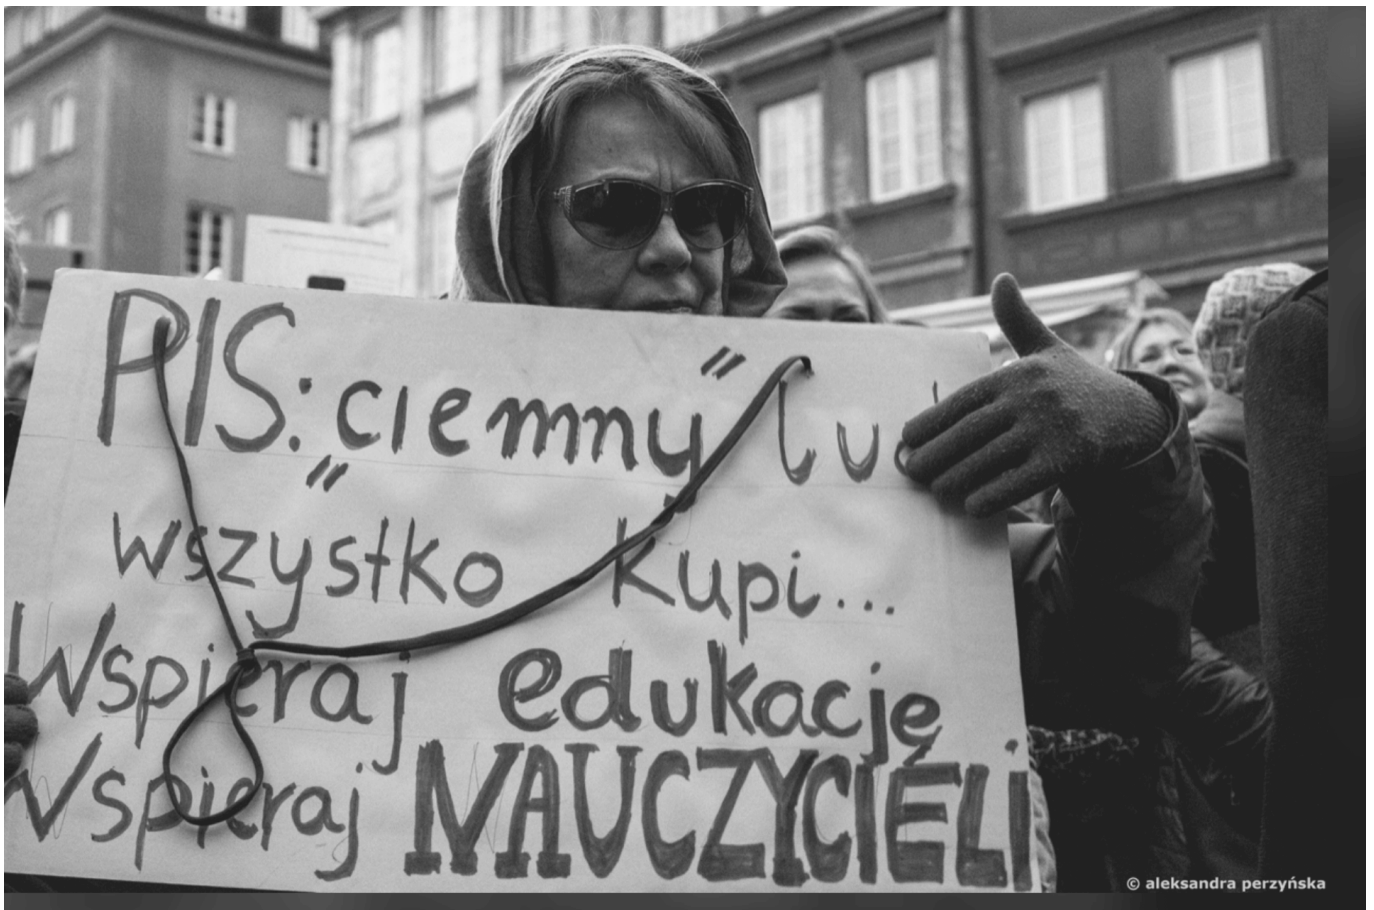 PIS: "ciemny" lud
wszystko kupi...
Wspieraj edukację
Wspieraj NAUCZYCIELI
© aleksandra perzyńska